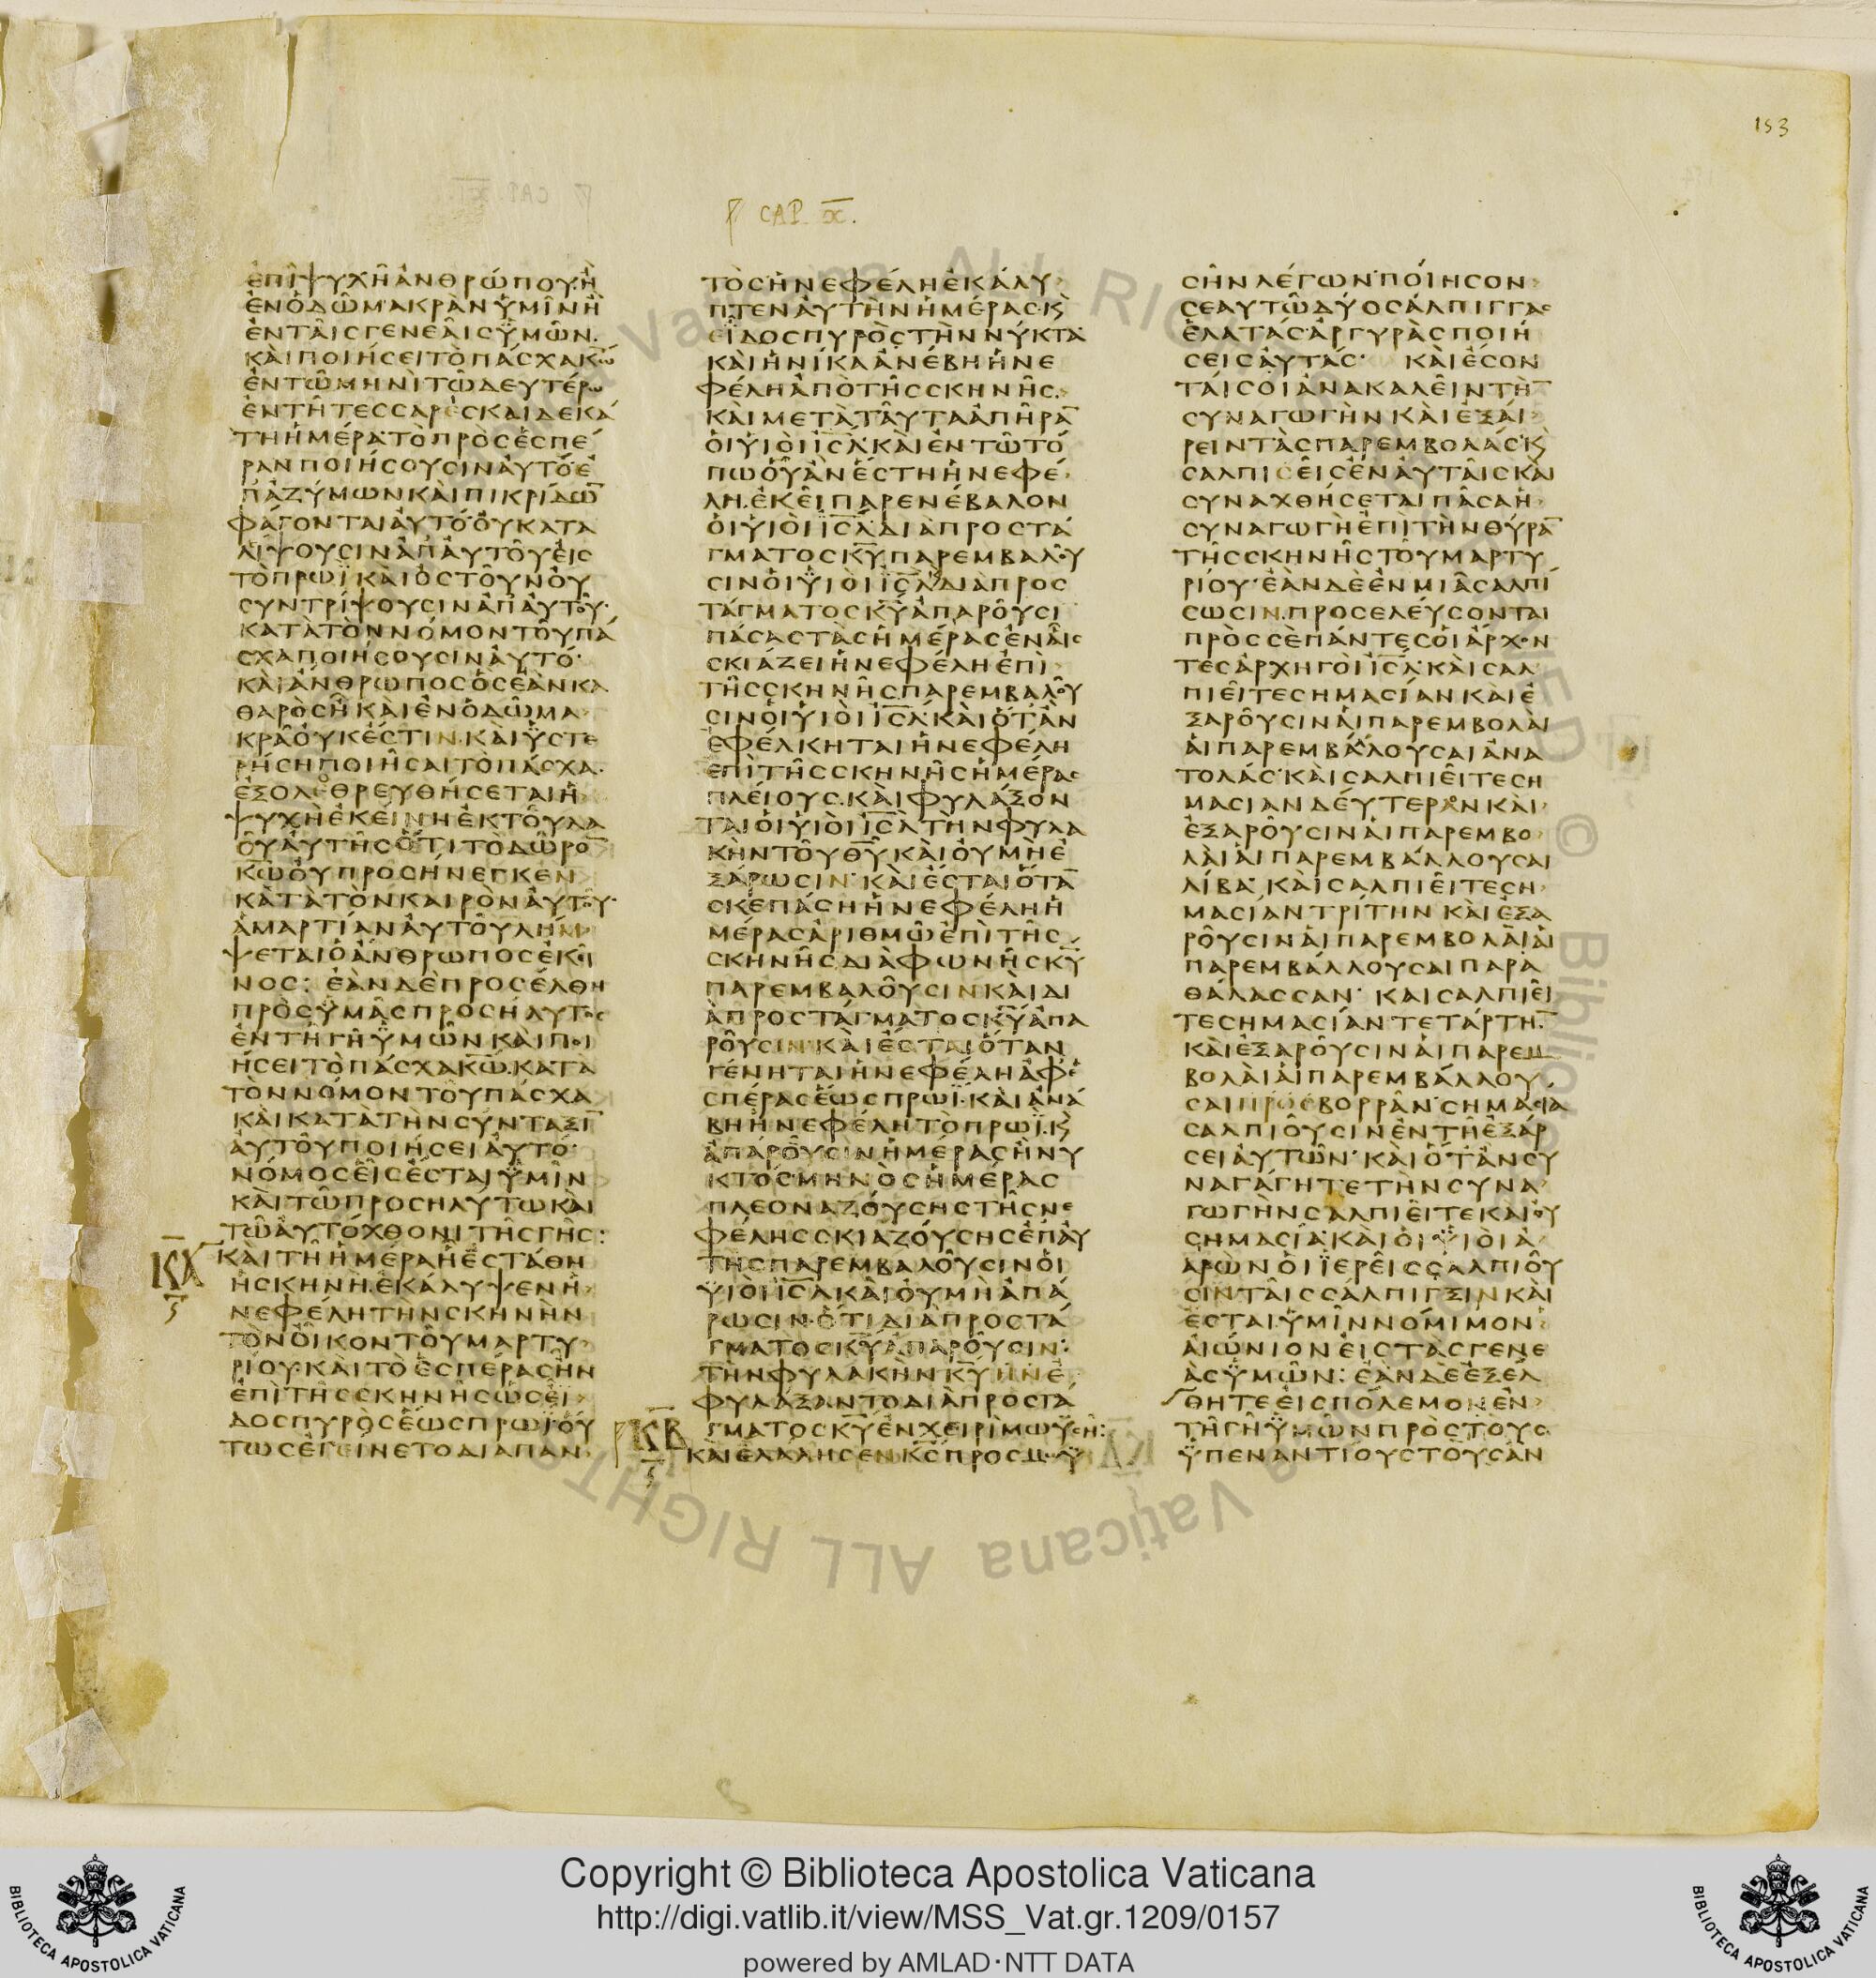 153
CAP. X.
ἐπὶ ψυχῇ ἀνθρώπου ἢ
ἐν ὁδῷ μακρὰν ὑμῖν ἢ
ἐν ταῖς γενεαῖς ὑμῶν.
καὶ ποιήσει τὸ πάσχα κ̅ω̅
ἐν τῷ μηνὶ τῷ δευτέρω
ἐν τῇ τεσσαρεσκαιδεκά
τῃ ἡμέρᾳ τὸ πρὸς ἑσπέ
ραν ποιήσουσιν αὐτό ἐ
π' ἀζύμων καὶ πικρίδω̅
φάγονται αὐτό· οὐ κατα
λίψουσιν ἀπ' αὐτοῦ εἰς
τὸ πρωῒ καὶ ὀστοῦν οὐ
συντρίψουσιν ἀπ' αὐτοῦ·
κατὰ τὸν νόμον τοῦ πά
σχα ποιήσουσιν αὐτό·
καὶ ἄνθρωπος ὃς ἐὰν κα
θαρὸς ᾖ καὶ ἐν ὁδῷ μα
κρᾷ οὐκ ἔστιν καὶ ὑστε
ρήσῃ ποιῆσαι τὸ πάσχα.
ἐξολεθρευθήσεται ἡ
ψυχὴ ἐκείνη ἐκ τοῦ λα
οῦ αὐτῆς ὅτι τὸ δῶρο̅
κ̅ω̅ οὐ προσήνεγκεν
κατὰ τὸν καιρὸν αὐτοῦ·
ἁμαρτίαν αὐτοῦ λήμ
ψεται ὁ ἄνθρωπος ἐκεῖ
νος: ἐὰν δὲ προσέλθῃ
πρὸς ὑμᾶς προσήλυτος
ἐν τῇ γῇ ὑμῶν καὶ ποι
ήσει τὸ πάσχα κ̅ω̅ κατὰ
τὸν νόμον τοῦ πάσχα
καὶ κατὰ τὴν σύνταξι̅
αὐτοῦ ποιήσει αὐτό·
νόμος εἷς ἔσται ὑμῖν
καὶ τῷ προσηλύτω καὶ
τῷ αὐτόχθονι τῆς γῆς:
Κ̅Α̅ καὶ τῇ ἡμέρᾳ ᾗ ἐστάθη
ἡ σκηνὴ ἐκάλυψεν ἡ
νεφέλη τὴν σκηνὴν
τὸν οἶκον τοῦ μαρτυ
ρίου· καὶ τὸ ἑσπέρας ἦν
ἐπὶ τῆς σκηνῆς ὡς εἶ
δος πυρὸς ἕως πρωΐ οὕ
τως ἐγείνετο διαπαν
τὸς ἡ νεφέλη ἐκάλυ
πτεν αὐτὴν ἡμέρας κ̀
εἶδος πυρὸς τὴν νύκτα·
καὶ ἡνίκα ἀνέβη ἡ νε
φέλη ἀπὸ τῆς σκηνῆς.
καὶ μετὰ ταῦτα ἀπῆρα̅
οἱ υἱοὶ ι̅σ̅λ̅· καὶ ἐν τῷ τό
πω οὗ ἂν ἔστη ἡ νεφέ
λη. ἐκεῖ παρενέβαλον
οἱ υἱοὶ ι̅σ̅λ̅· διὰ προστά
γματος κ̅υ̅ παρεμβαλοῦ
σιν οἱ υἱοὶ ι̅σ̅λ̅ διὰ προσ
τάγματος κ̅υ̅ ἀπαροῦσι
πάσας τὰς ἡμέρας ἐν αἷς
σκιάζει ἡ νεφέλη ἐπὶ
τῆς σκηνῆς παρεμβαλοῦ
σιν οἱ υἱοὶ ι̅σ̅λ̅· καὶ ὅταν
ἐφέλκηται ἡ νεφέλη
ἐπὶ τῆς σκηνῆς ἡμέρας
πλείους. καὶ φυλάξον
ται οἱ υἱοὶ ι̅σ̅λ̅ τὴν φυλα
κὴν τοῦ θ̅υ̅ καὶ οὐ μὴ ἐ
ξάρωσιν· καὶ ἔσται ὅτα̅
σκεπάσῃ ἡ νεφέλη ἡ
μέρας ἀριθμῷ ἐπὶ τῆς
σκηνῆς διὰ φωνῆς κ̅υ̅
παρεμβαλοῦσιν καὶ δι
ὰ προστάγματος κ̅υ̅ ἀπα
ροῦσιν καὶ ἔσται ὅταν
γένηται ἡ νεφέλη ἀφ' ἑ
σπέρας ἕως πρωΐ· καὶ ἀνα
βῇ ἡ νεφέλη τὸ πρωΐ κ̀
ἀπαροῦσιν ἡμέρας ἢ νυ
κτός· μηνὸς ἡμέρας
πλεοναζούσης τῆς νε
φέλης σκιαζούσης ἐπ' αὐ
τῆς παρεμβαλοῦσιν οἱ
υἱοὶ ι̅σ̅λ̅ καὶ οὐ μὴ ἀπά
ρωσιν ὅτι διὰ προστά
γματος κ̅υ̅ ἀπαροῦσιν:
τὴν φυλακὴν κ̅υ̅ ἐ
φυλάξαντο διὰ προστά
γματος κ̅υ̅ ἐν χειρὶ μωυσῆ:
Κ̅Β̅ καὶ ἐλάλησεν κ̅ς̅ πρὸς μωυ
σῆν λέγων· ποίησον
σεαυτῷ δύο σάλπιγγας
ἐλατάς· ἀργυρᾶς ποιή
σεις αὐτάς· καὶ ἔσον
ταί σοι ἀνακαλεῖν τὴ̅
συναγωγὴν καὶ ἐξαί
ρειν τὰς παρεμβολάς κ̀
σαλπιεῖς ἐν αὐταῖς καὶ
συναχθήσεται πᾶσα ἡ
συναγωγὴ ἐπὶ τὴν θύρα̅
τῆς σκηνῆς τοῦ μαρτυ
ρίου· ἐὰν δὲ ἐν μιᾷ σαλπί
σωσιν. προσελεύσονται
πρὸς σὲ πάντες οἱ ἄρχον
τες ἀρχηγοὶ ι̅σ̅λ̅· καὶ σαλ
πιεῖτε σημασίαν καὶ ἐ
ξαροῦσιν αἱ παρεμβολαὶ
αἱ παρεμβάλλουσαι ἀνα
τολάς· καὶ σαλπιεῖτε ση
μασίαν δευτέραν καὶ
ἐξαροῦσιν αἱ παρεμβο
λαὶ αἱ παρεμβάλλουσαι
λίβα· καὶ σαλπιεῖτε ση
μασίαν τρίτην καὶ ἐξα
ροῦσιν αἱ παρεμβολαὶ αἱ
παρεμβάλλουσαι παρὰ
θάλασσαν· καὶ σαλπιεῖ
τε σημασίαν τετάρτη̅
καὶ ἐξαροῦσιν αἱ παρεμ
βολαὶ αἱ παρεμβάλλου
σαι πρὸς βορρᾶν· σημασία
σαλπιοῦσιν ἐν τῇ ἐξάρ
σει αὐτῶν· καὶ ὅταν συ
ναγάγητε τὴν συνα
γωγὴν σαλπιεῖτε καὶ οὐ
σημασίᾳ· καὶ οἱ υἱοὶ ἀ
αρὼν οἱ ἱερεῖς σαλπιοῦ
σιν ταῖς σάλπιγξιν καὶ
ἔσται ὑμῖν νόμιμον
αἰώνιον εἰς τὰς γενε
ὰς ὑμῶν: ἐὰν δὲ ἐξέλ
θητε εἰς πόλεμον ἐν
τῇ γῇ ὑμῶν πρὸς τοὺς
ὑπεναντίους τοὺς ἀν
Copyright © Biblioteca Apostolica Vaticana
http://digi.vatlib.it/view/MSS_Vat.gr.1209/0157
powered by AMLAD·NTT DATA
BIBLIOTECA APOSTOLICA VATICANA
BIBLIOTECA APOSTOLICA VATICANA